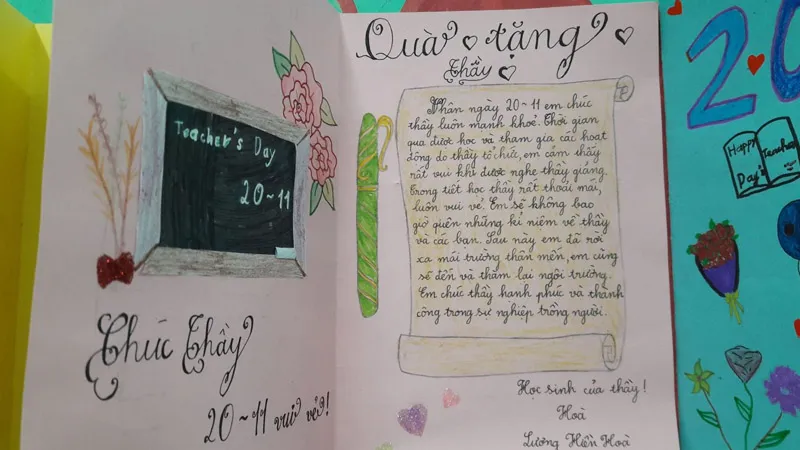 Teacher's Day
20~11
Chúc Thầy
20~11 vui vẻ!
Quà tặng
thầy
Nhân ngày 20~11 em chúc
thầy luôn mạnh khoẻ. Thời gian
qua được học và tham gia các hoạt
động do thầy tổ chức, em cảm thấy
rất vui khi được nghe thầy giảng.
Trong tiết học thầy rất thoải mái,
luôn vui vẻ. Em sẽ không bao
giờ quên những kỉ niệm về thầy
và các bạn. Sau này em đã rời
xa mái trường thân mến, em cũng
sẽ đến và thăm lại ngôi trường.
Em chúc thầy hạnh phúc và thành
công trong sự nghiệp trồng người.
Học sinh của thầy!
Hoà
Lương Hiền Hoà
20
Happy
Teacher
Day's